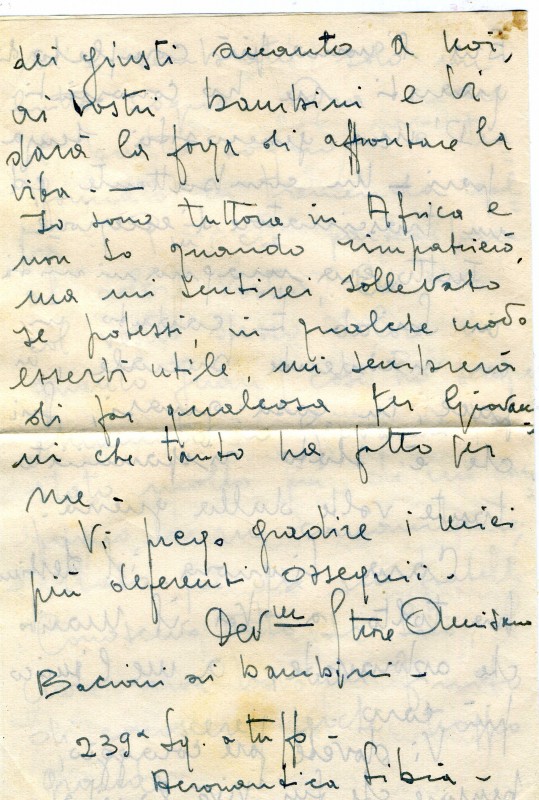 dei giusti accanto a noi,
ai vostri bambini e Vi
darà la forza di affrontare la
vita. —
Io sono tuttora in Africa e
non so quando rimpatrierò,
ma mi sentirei sollevato
se potessi, in qualche modo
esserVi utile, mi sembrerà
di far qualcosa per Giovan-
ni che tanto ha fatto per
me -
Vi prego gradire i miei
più deferenti ossequii -
Dev mo Ettore
Bacioni ai bambini -
239ª Sq. a tuffo -
Aeronautica Libia -